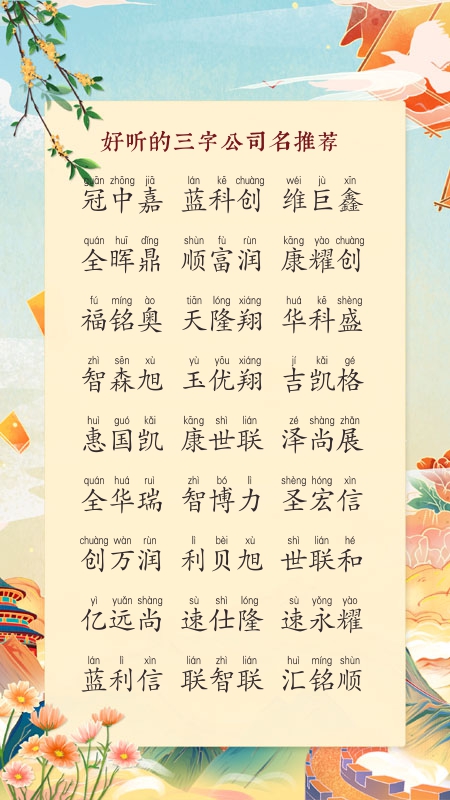 好听的三字公司名推荐
guān zhōng jiā lán kē chuàng wéi jù xīn
冠中嘉 蓝科创 维巨鑫
quán huī dǐng shùn fù rùn kāng yào chuàng
全晖鼎 顺富润 康耀创
fú míng ào tiān lóng xiáng huá kē shèng
福铭奥 天隆翔 华科盛
zhì sēn xù yù yōu xiáng jí kǎi gé
智森旭 玉优翔 吉凯格
huì guó kǎi kāng shì lián zé shàng zhǎn
惠国凯 康世联 泽尚展
quán huá ruì zhì bó lì shèng hóng xìn
全华瑞 智博力 圣宏信
chuàng wàn rùn lì bèi xù shì lián hé
创万润 利贝旭 世联和
yì yuǎn shàng sù shì lóng sù yǒng yào
亿远尚 速仕隆 速永耀
lán lì xìn lián zhì lián huì míng shùn
蓝利信 联智联 汇铭顺